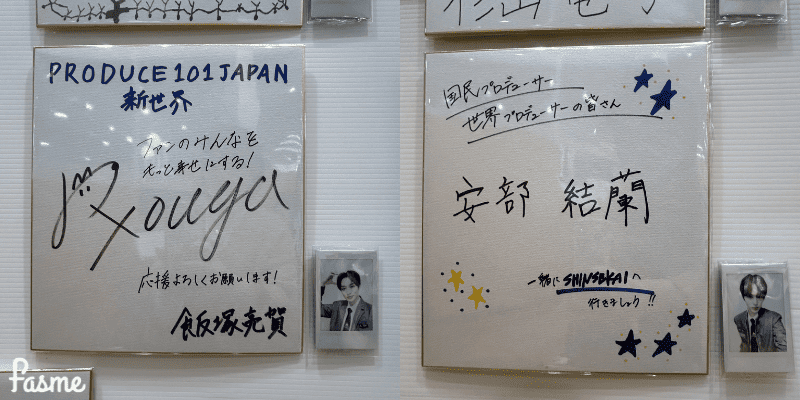 PRODUCE 101 JAPAN
新世界
ファンのみんなを
もっと幸せにする!
youga
応援よろしくお願いします!
飯塚亮賀
国民プロデューサー
世界プロデューサーの皆さん
安部 結蘭
一緒にSHINSEKAIへ
行きましょう!!
fasme